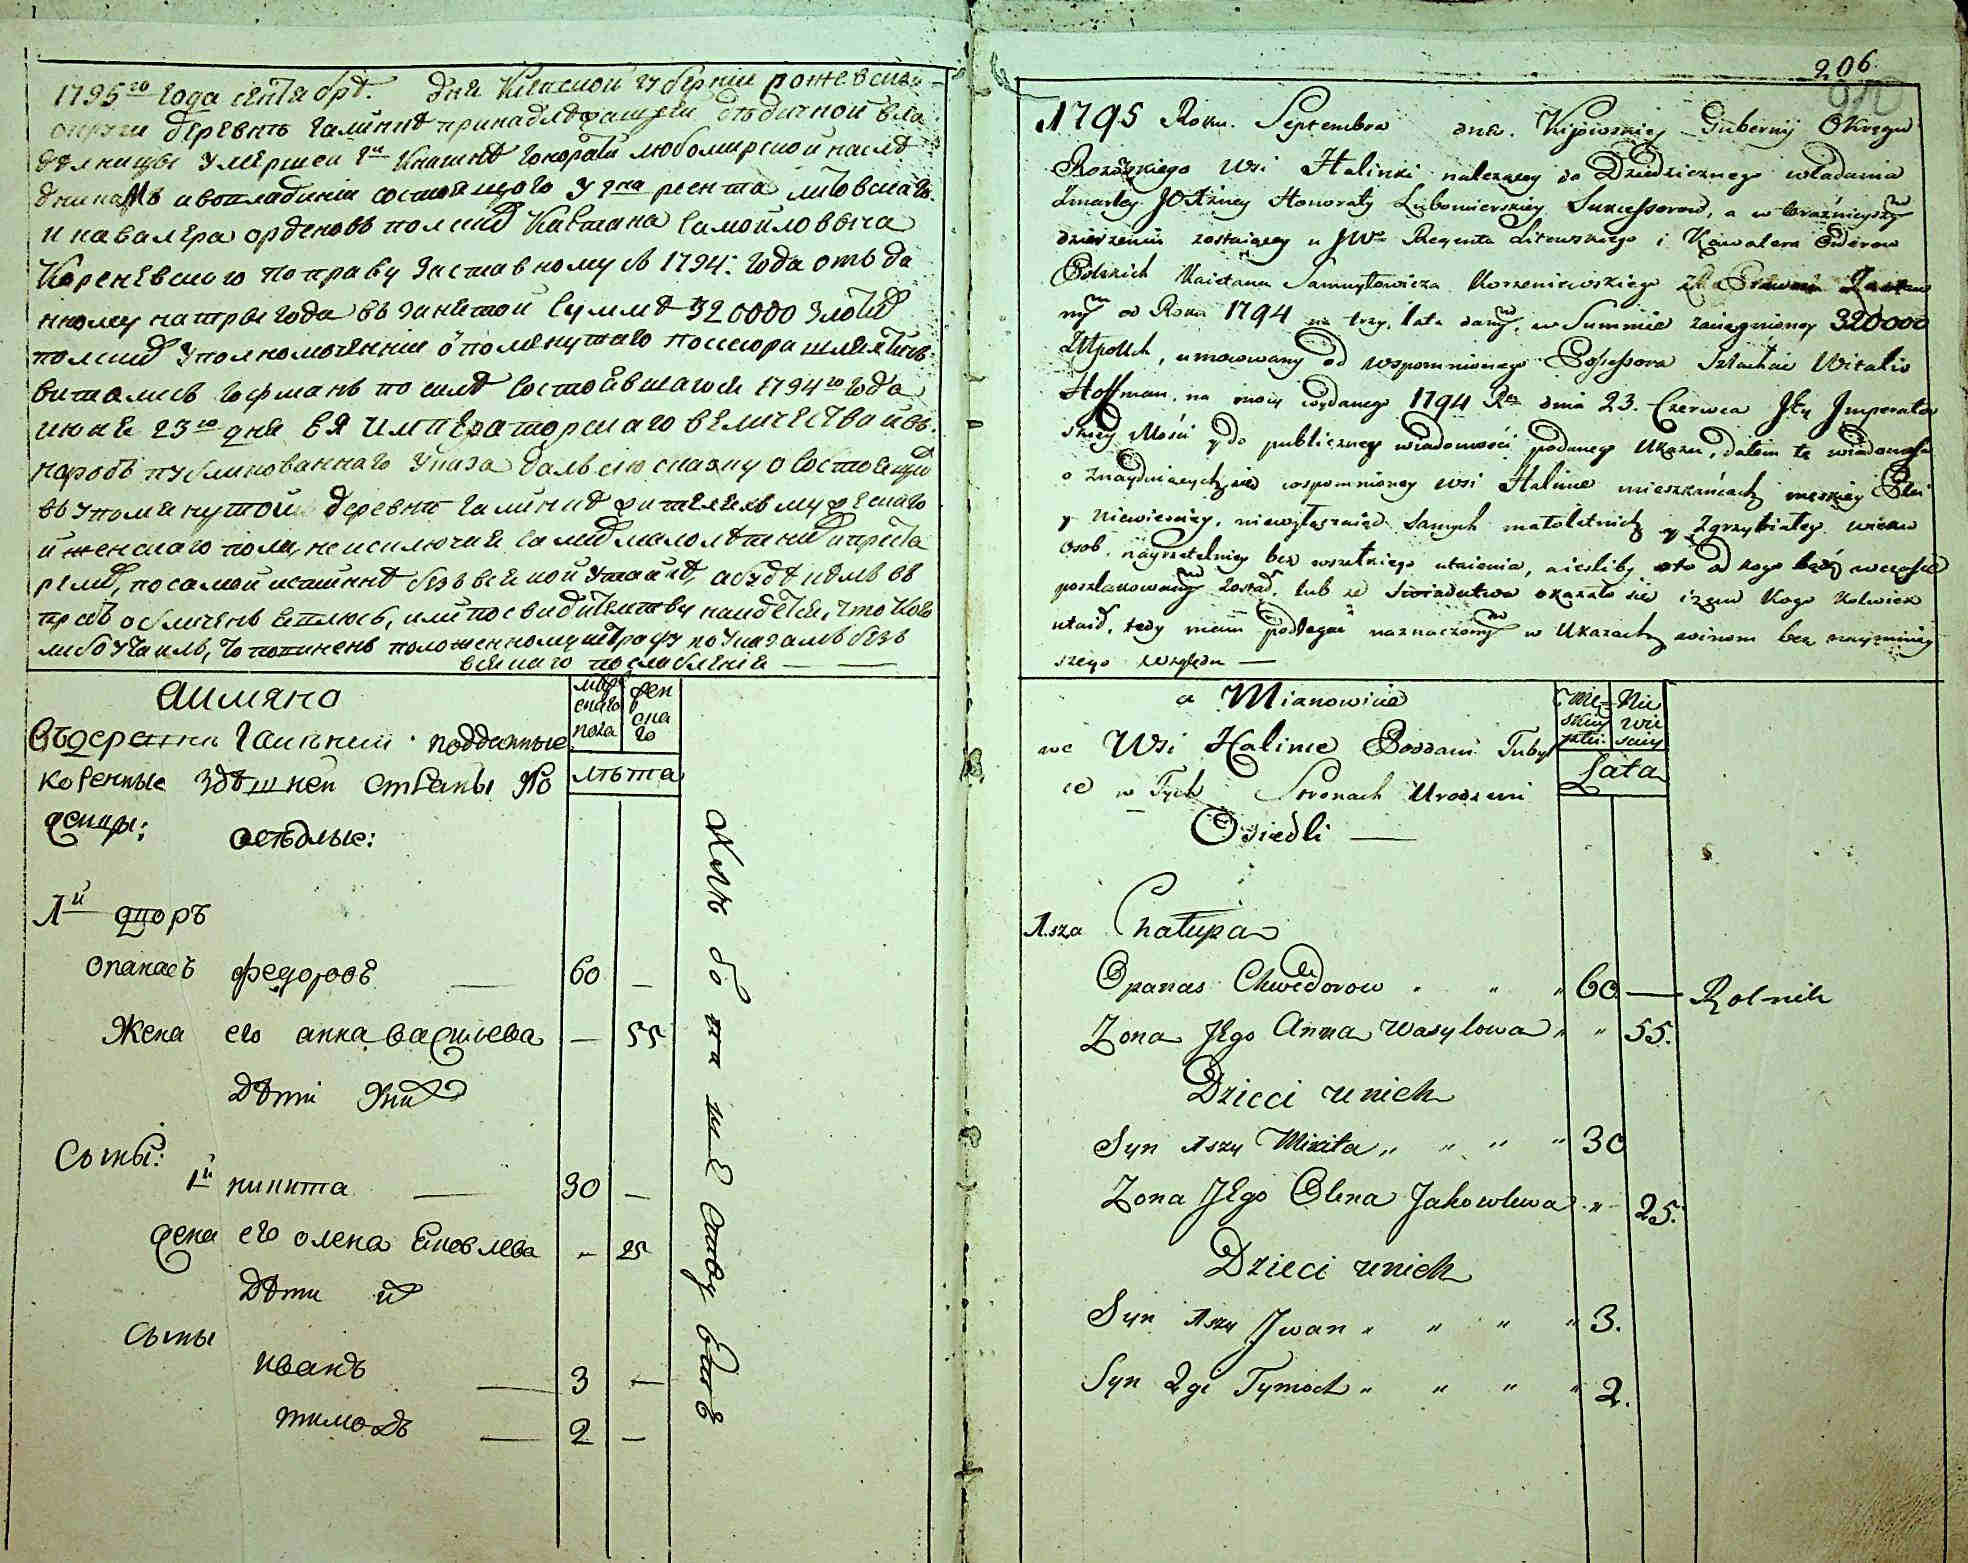 1795го года сентября. дня Киевской губернии рожевскаго
округи деревне галинке принадлежащей владе
делницы умершей ей Княгине гонораты любомирской насле
дникамъ ивовладении состоящаго у гна реента литовскаго
и кавалера орденовъ полских Каетана самойловича
Кореневского по праву заставному съ 1794: года отъ да
нному на тры года въ занятой сумме 320000 злотых
полских уполномоченнии о помянутаго посесора шляхтичъ
виталисъ гофманъ по силе состоявшагося 1794го года
июня 23го дня ея императорскаго величества и въ
народъ публикованнаго указа далъ сию сказку о состоящих
въ упомянутой деревне галинке жителях мужескаго
и женскаго пола, не исключая самих малолетних и преста
релых, по самой истинне безъ всякой утайки, а буде кемъ въ
предь обличенъ явлюсь, или по свидителству найдется, что кого
либо утаилъ, то повиненъ положенному штрафу по указамъ безъ
всякаго послабления
аимяно
мужескаго пола
женскаго
Въ деревни Галинки подданные
коренные здешней страны уро
женцы: оседлые:
лѣта
1й дворъ
опанасъ федоровъ — 60 —
Жена его анна васильева — 55
дѣти у них
Сыны:
1й никита — 30 —
жена его олена яковлева " 25
дѣти их
Сыны
иванъ — 3 —
тимохъ — 2 —
Хлѣбопашествуетъ
206
1795 Roku. Septembra dnia. Kijowskiey Gubernij Okręgu
Rożowskiego Wsi Halinki należącey do Dziedzicznego władania
Zmarłey JOXiżney Honoraty Lubomierskiey Sukcessorow, a w teraźnieyszym
dzierżeniu zostaiącey u JWo Regenta Litewskiego i Kawalera Orderow
Polskich Kaietana Samuyłowicza Korzeniewskiego za Prawem Zastaw
nym od Roku 1794 na trzy lata danym, w Summie zaciągnioney 320000
Złłpolsch, umocowany od wspomnionego Possessora Szlachcic Witalis
Hoffman, na mocy wydanego 1794 Rku dnia 23. Czerwca Jey Imperator
skiey Mości y do publiczney wiadomości podanego Ukazu, dałem tę wiadomość
o znayduiących się wspomnioney wsi Halince mieszkańcach męskiey Płci
y Niewieściey, niewyłączaiąc samych małoletnich y Zgrzybiałey wieku
osob, nayrzetelniey bez wszelkiego utaienia, a ieśliby kto od kogo w czasie
poszlakowanym został, lub ze świadectwa okazało się iżem kogo kolwiek
utaił, tedy mam podlegać naznaczonym w Ukazach winom bez naymniey
szego względu —
a Mianowicie
Mę-skiey płci
Nie wie sciey
we Wsi Halince Poddani Tubyl
ce w Tych Stronach Urodzeni
Osiedli —
Lata
1sza Chałupa
Opanas Chwedorow " " " 60 — Rolnik
Zona Jego Anna Wasylowa " " 55.
Dzieci unich
Syn 1szy Mikita " " " " 30
Zona Jego Olena Jakowlewa " 25.
Dzieci unich
Syn 1szy Jwan " " " " 3.
Syn 2gi Tymoch " " " " 2.